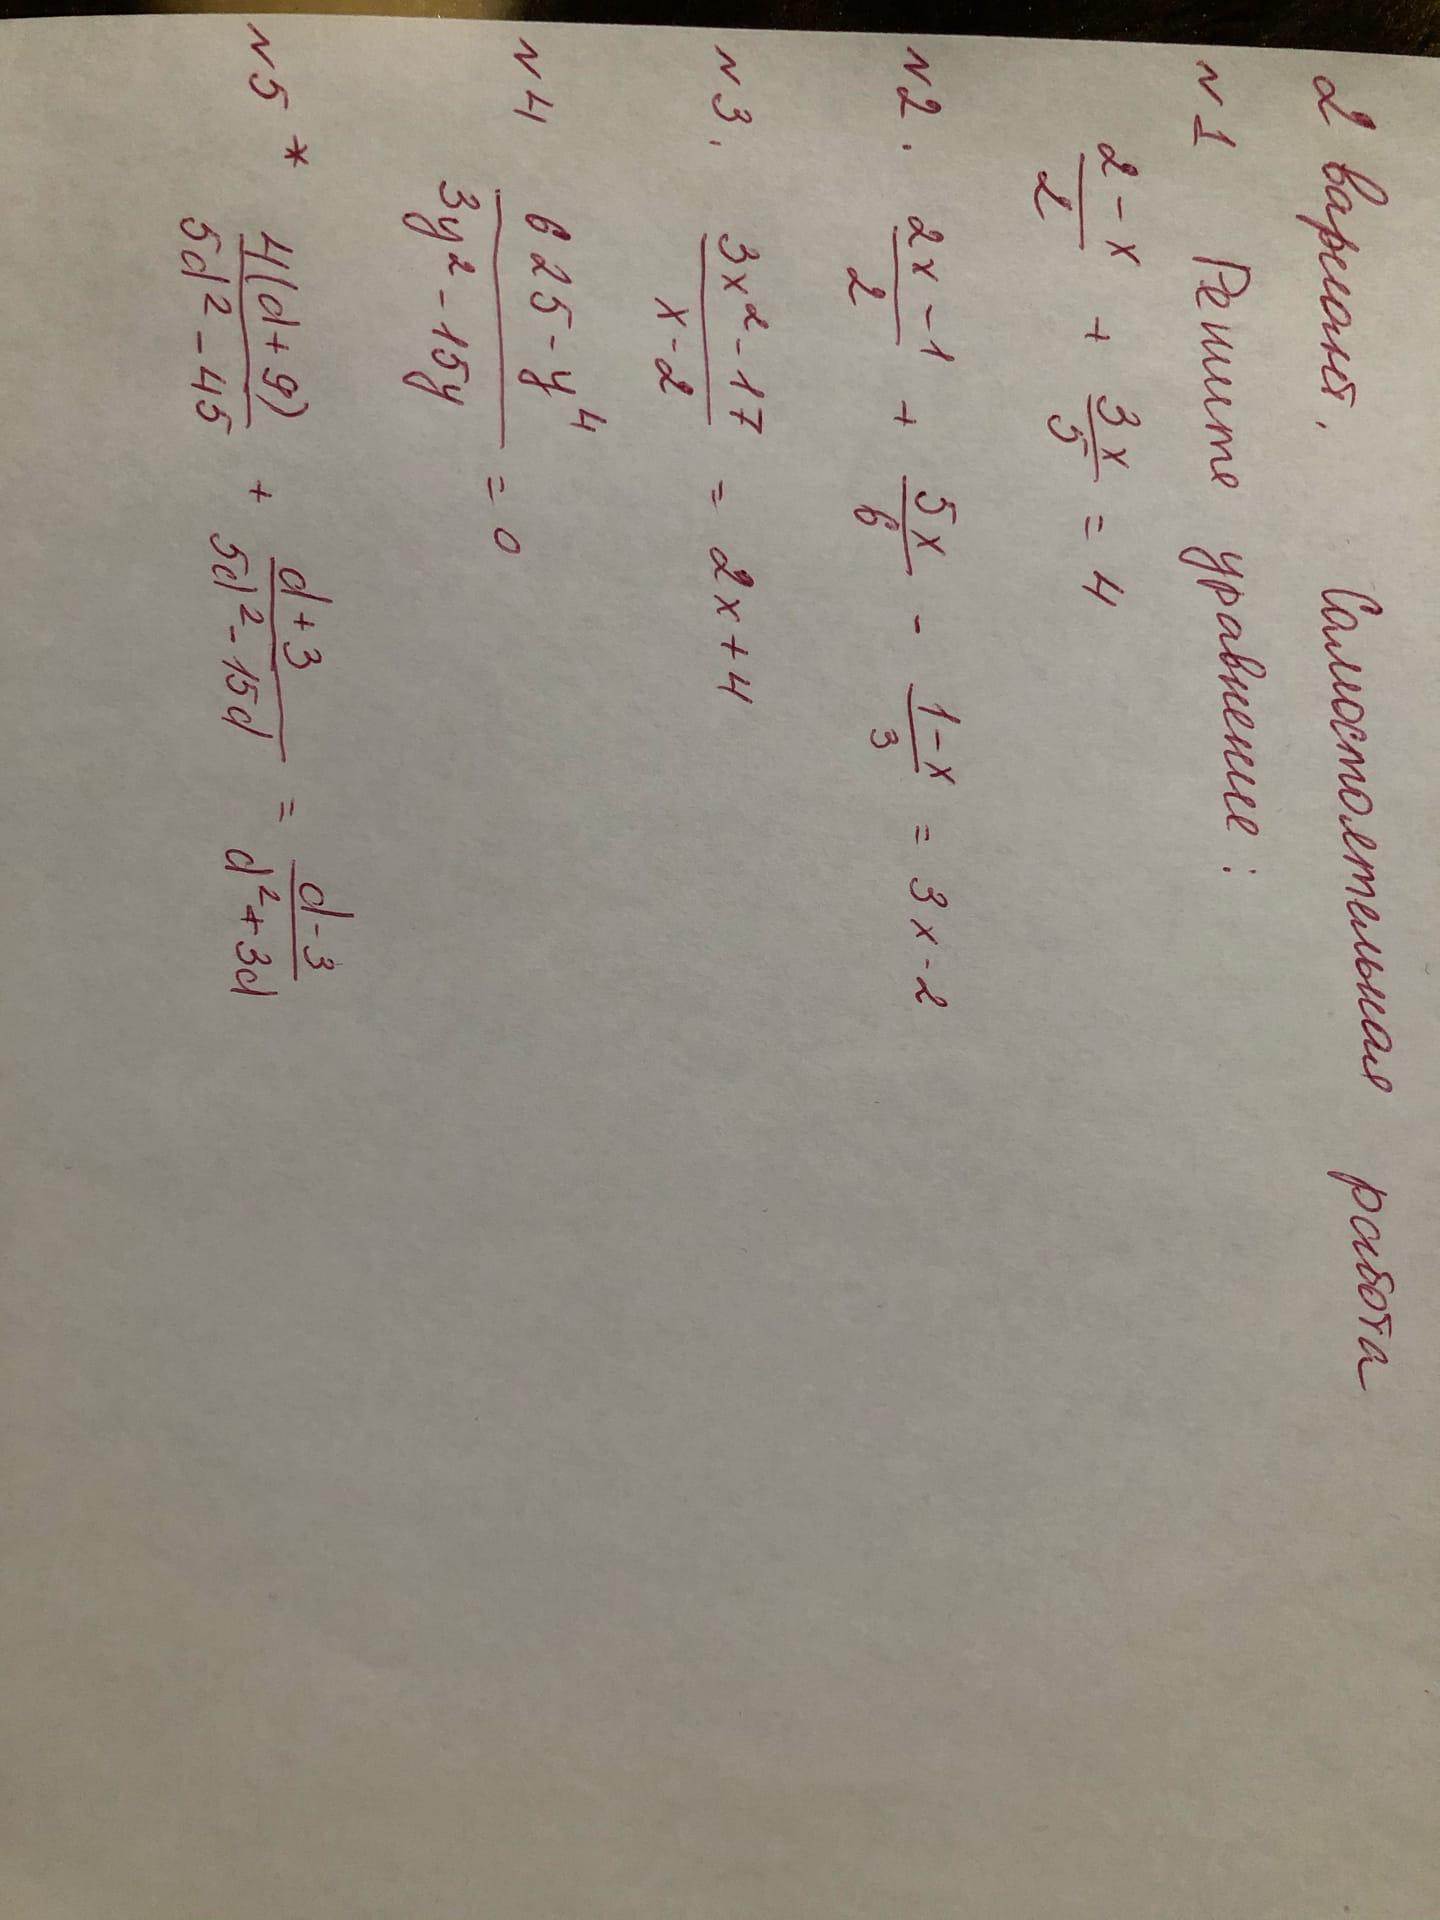 2 вариант. Самостоятельная работа
N1 Решите уравнение:
(2-x)/2 + 3x/5 = 4
N2. (2x-1)/2 + 5x/6 - (1-x)/3 = 3x-2
N3. (3x²-17)/(x-2) = 2x+4
N4 (625-y⁴)/(3y²-15y) = 0
N5* 4(d+9)/(5d²-45) + (d+3)/(5d²-15d) = (d-3)/(d²+3d)